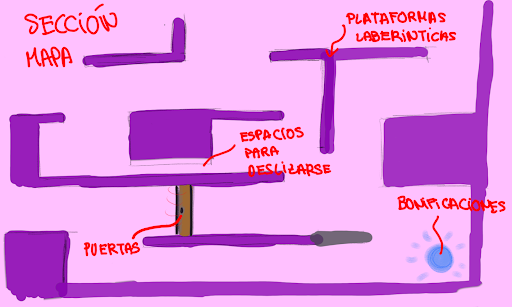 SECCIÓN
MAPA
PLATAFORMAS
LABERINTICAS
ESPACIOS
PARA
DESLIZARSE
PUERTAS
BONIFICACIONES